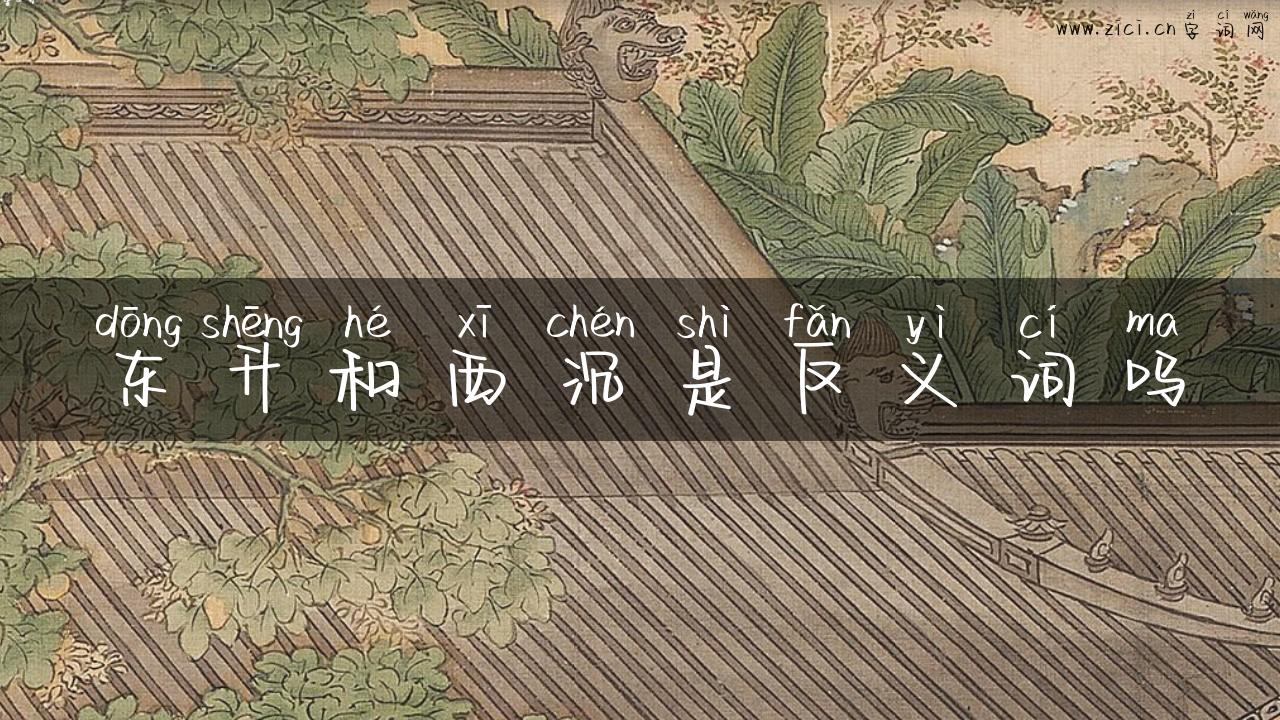 zì cí wǎng
www.zici.cn 字词网
dōng shēng hé xī chén shì fǎn yì cí ma
东升和西沉是反义词吗